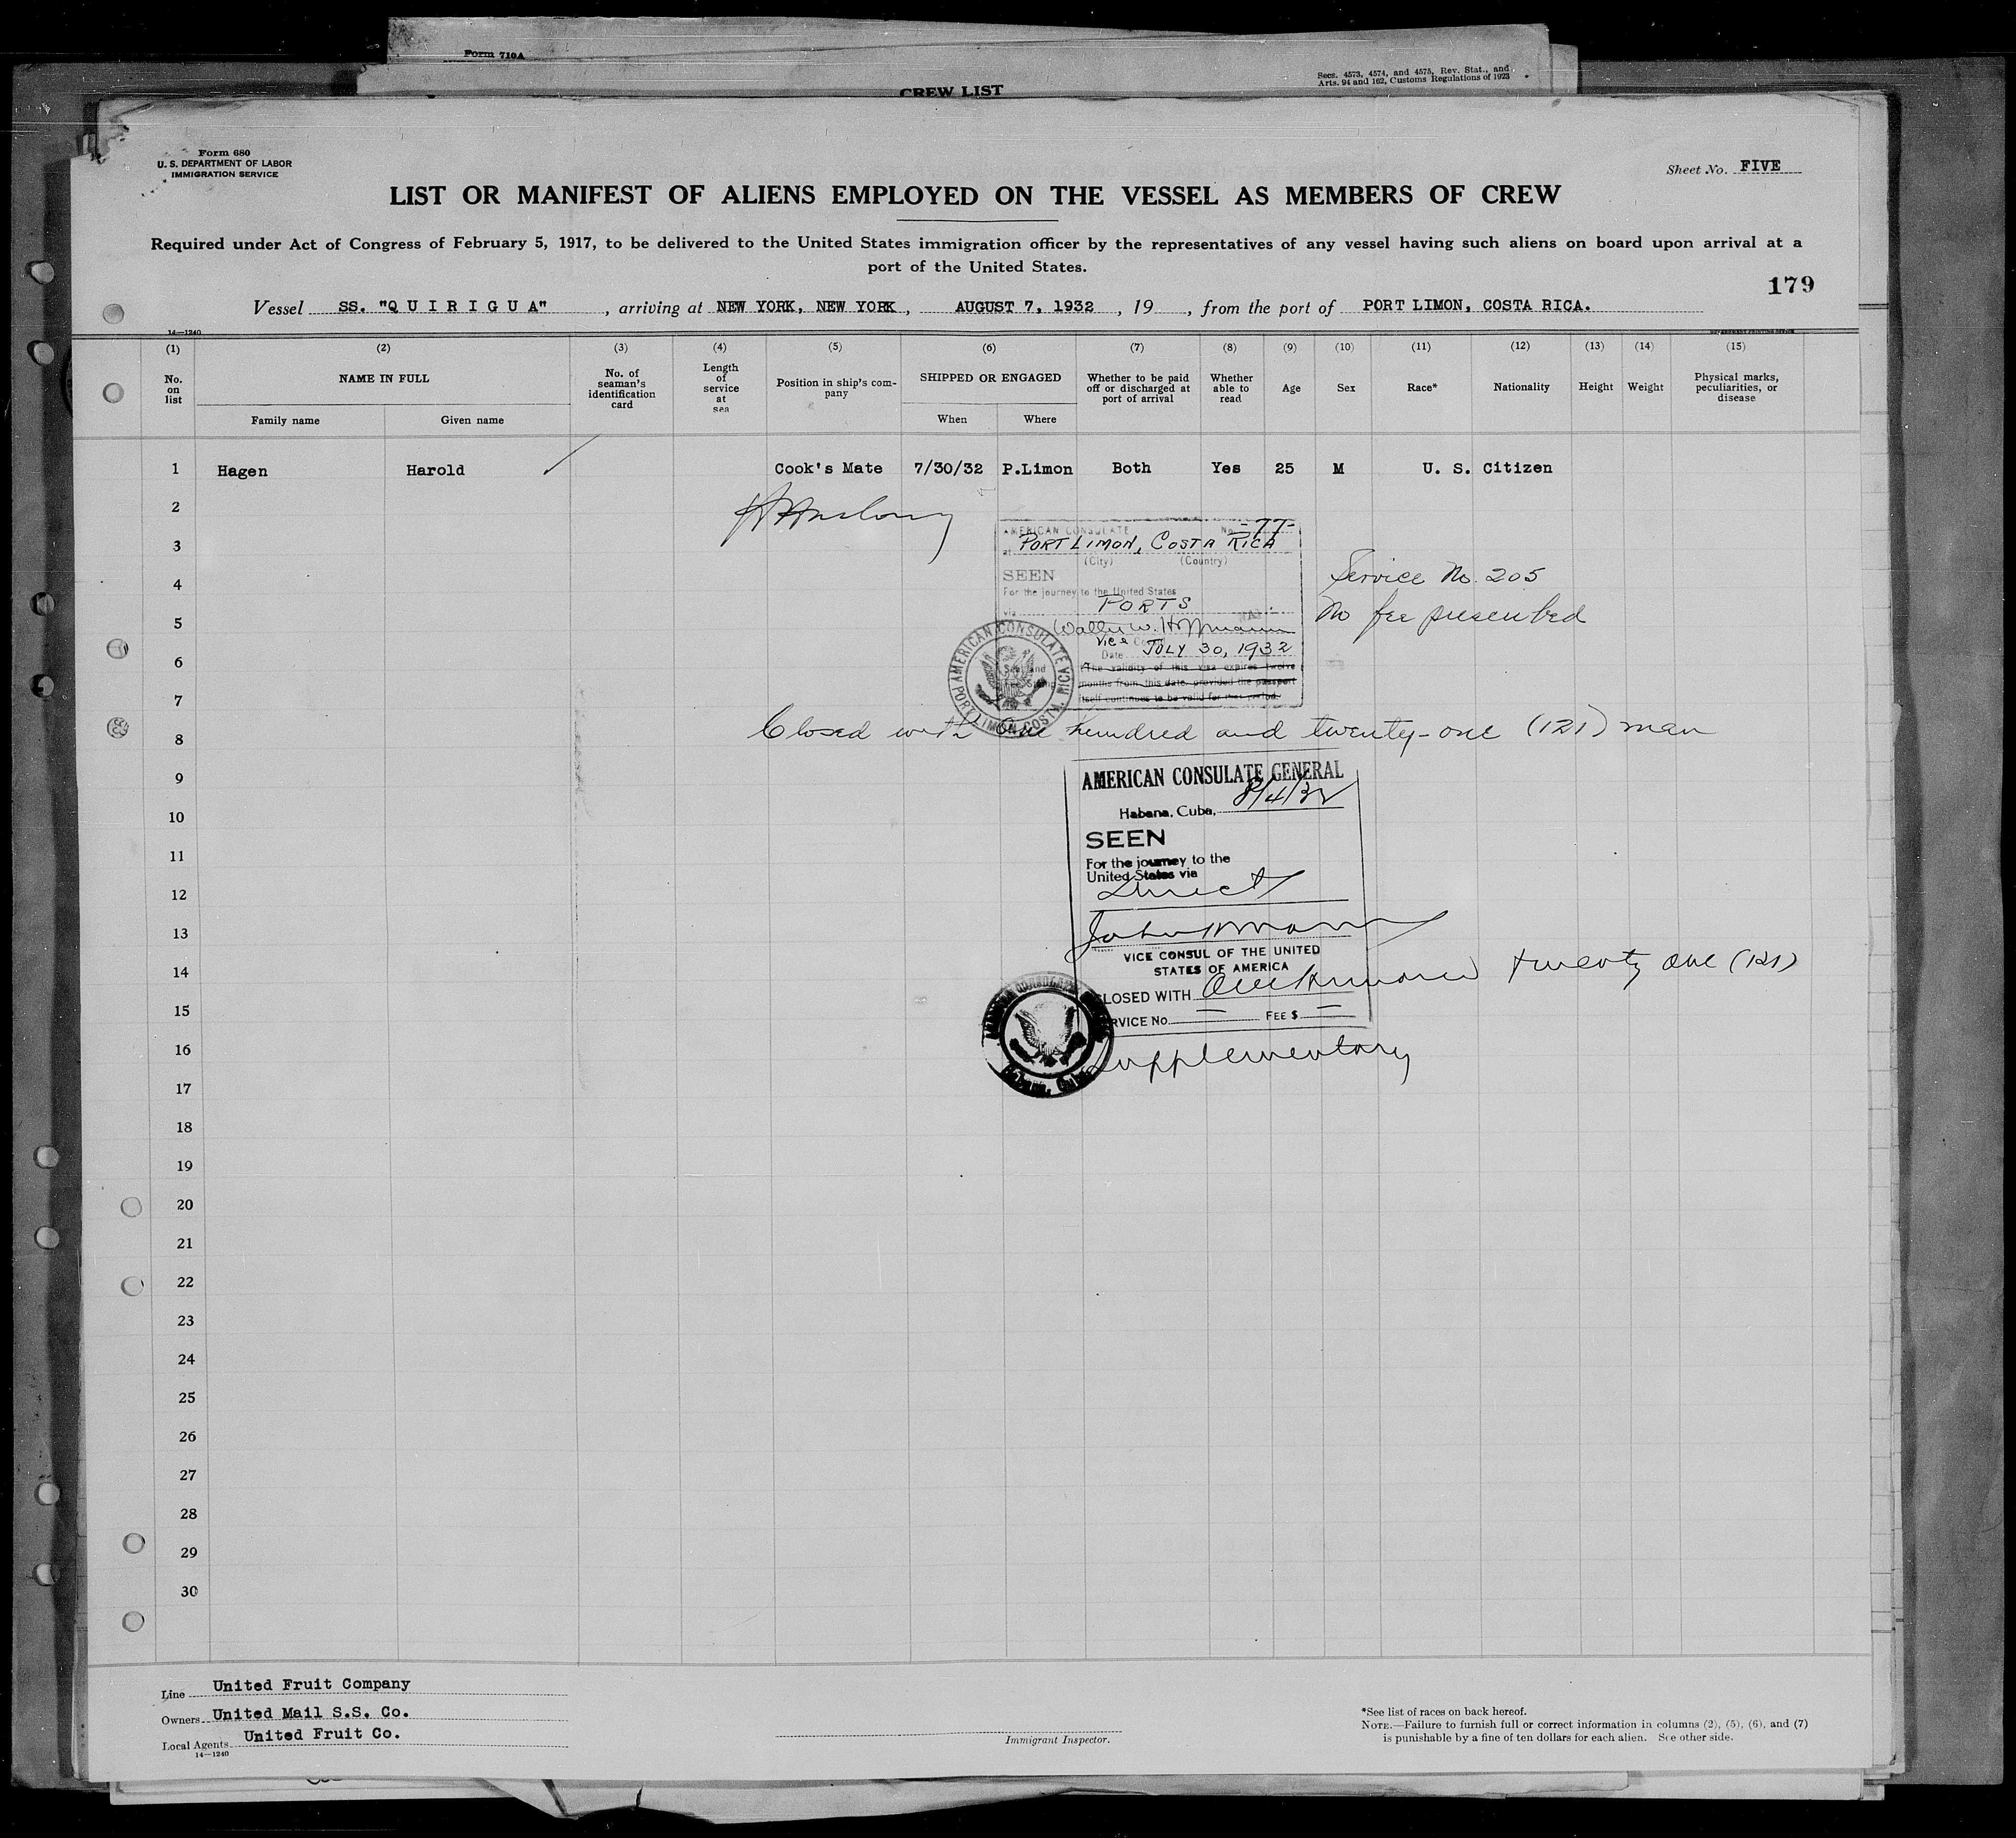 Form 710A
Secs. 4573, 4574, and 4575, Rev. Stat., and
Arts. 94 and 162, Customs Regulations of 1923
CREW LIST
Form 680
U. S. DEPARTMENT OF LABOR
IMMIGRATION SERVICE
Sheet No. FIVE
LIST OR MANIFEST OF ALIENS EMPLOYED ON THE VESSEL AS MEMBERS OF CREW
Required under Act of Congress of February 5, 1917, to be delivered to the United States immigration officer by the representatives of any vessel having such aliens on board upon arrival at a
port of the United States.
179
Vessel SS. "Q U I R I G U A" , arriving at NEW YORK, NEW YORK, AUGUST 7, 1932 , 19 , from the port of PORT LIMON, COSTA RICA.
14—1240
(1) (2) (3) (4) (5) (6) (7) (8) (9) (10) (11) (12) (13) (14) (15)
No. on list
NAME IN FULL
Family name
Given name
No. of seaman's identification card
Length of service at sea
Position in ship's com-
pany
SHIPPED OR ENGAGED
When
Where
Whether to be paid off or discharged at port of arrival
Whether able to read
Age
Sex
Race*
Nationality
Height
Weight
Physical marks, peculiarities, or disease
1 Hagen Harold Cook's Mate 7/30/32 P.Limon Both Yes 25 M U. S. Citizen
2
3
4
5
6
7
8
9
10
11
12
13
14
15
16
17
18
19
20
21
22
23
24
25
26
27
28
29
30
AMERICAN CONSULATE No. -77-
at PORT LIMON, COSTA RICA
(City) (Country)
SEEN
For the journey to the United States
via PORTS
Walter W. Hoffmann
Vice
Date JULY 30, 1932
The validity of this visa expires twelve
months from this date, provided the passport
itself continues to be valid for that period.
AMERICAN CONSULATE PORT LIMON, COSTA RICA
Service No. 205
No fee prescribed
Closed with One hundred and twenty-one (121) men
AMERICAN CONSULATE GENERAL
Habana, Cuba, 8/4/32
SEEN
For the journey to the
United States via
Direct
VICE CONSUL OF THE UNITED
STATES OF AMERICA
CLOSED WITH One hundred twenty one (121)
SERVICE No. — FEE $ —
Habana, Cuba
Supplementary
Line United Fruit Company
Owners United Mail S.S. Co.
Local Agents United Fruit Co.
14—1240
Immigrant Inspector.
*See list of races on back hereof.
NOTE.—Failure to furnish full or correct information in columns (2), (5), (6), and (7)
is punishable by a fine of ten dollars for each alien. See other side.